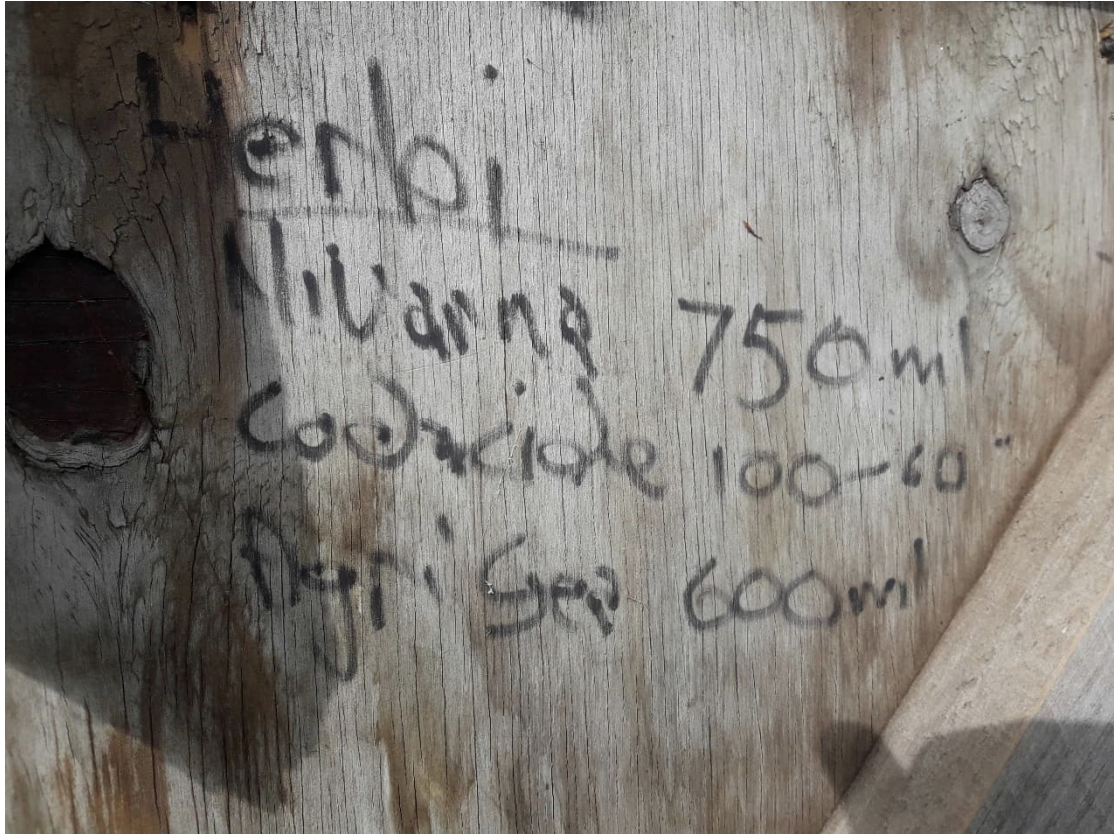 Herbi
Nivanna 750ml
Codacide 100-60"
Agri Sea 600ml